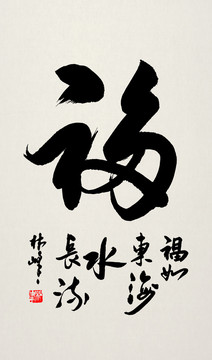 福
福如
東海
水
長流
林峰